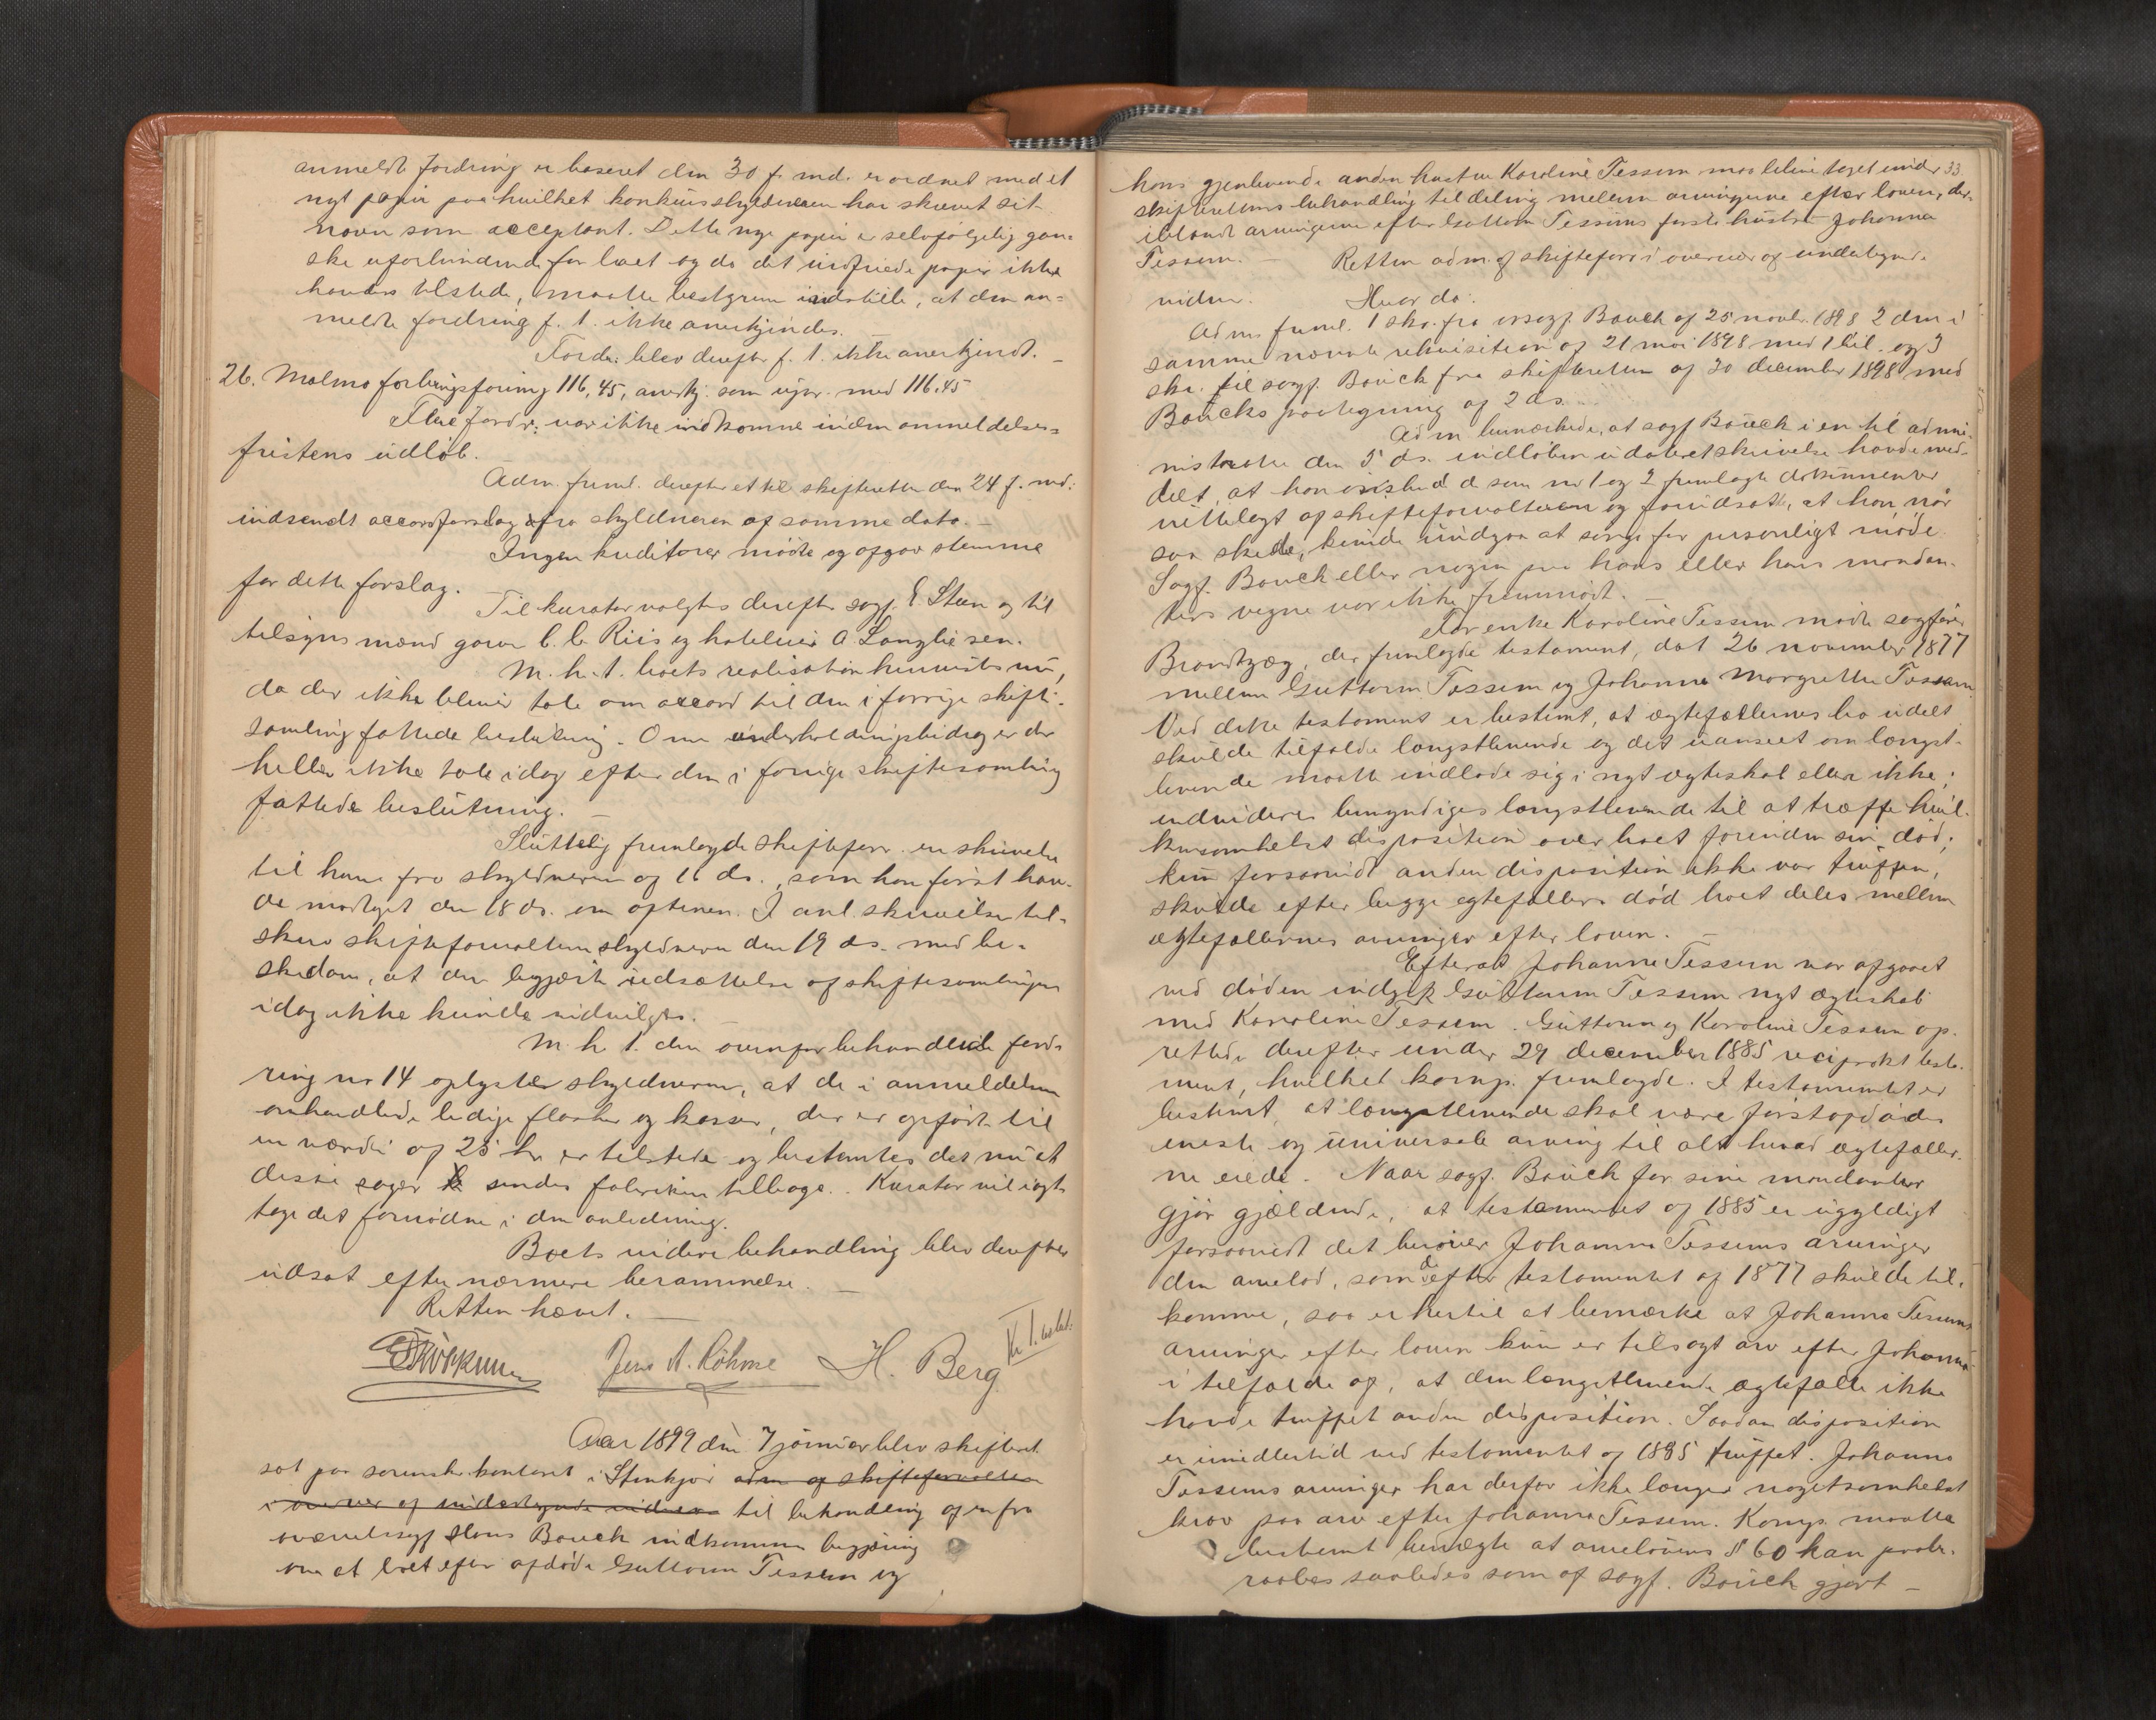 anmeldt fordring er baseret den 30 f. md. er ordnet med et
nyt papir paa hvilket konkursskyldneren har skrevet sit
navn som acceptant. Dette nye papir er selvfølgelig gan-
ske uforbindende for boet og da det indfriede papir ikke
havdes tilstede, maatte bestyreren indstille, at den an-
meldte fordring f. t. ikke anerkjendes.
Fordr. blev derefter f. t. ikke anerkjendt. —
26. Malmo forlagsforening 116,45, anerkj. som upr. med 116.45
Flere fordr. var ikke indkomne inden anmeldelses-
fristens udløb.
Adm. freml. derefter et til skifteretten den 24 f. md.
indsendt accordforslag fra skyldneren af samme dato. —
Ingen kreditorer mødte og afgav stemme
for dette forslag.
Til kurator valgtes derefter sagf. E Steen og til
tilsynsmænd garver C. C. Riis og hoteleier A Langlie sen.
M. h. t. boets realisation henvistes nu,
da der ikke bliver tale om accord til den i forrige skifte-
samling fattede beslutning. Om underholdningsbidrag er der
heller ikke tale idag efter den i forrige skiftesamling
fattede beslutning. —
Sluttelig fremlagde skifteforv. en skrivelse
til ham fra skyldneren af 16 ds., som han først hav-
de modtaget den 18 ds. om aftenen. I anl. skrivelsen til-
skrev skifteforvalteren skyldneren den 19 ds. med be-
skeden, at den begjærte udsættelse af skiftesamlingen
idag ikke kunde indvilges. —
M. h t. den ovenfor behandlede ford-
ring nr 14 oplyste skyldneren, at de i anmeldelsen
omhandlede ledige flasker og kasser, der er opført til
en værdi af 25 kr er tilstede og bestemtes det nu at
disse sager sendes fabriken tilbage. Kurator vil iagt-
tage det fornødne i den anledning.
Boets videre behandling blev derefter
udsat efter nærmere berammelse. —
Retten hævet. —
Jens A. Röhme H. Berg
Aar 1899 den 7 januar blev skifteret
sat paa sorenskr.kontoret i Stenkjær adm af skifteforvalteren
i overvær af undertegnede vidner til behandling af en fra
overretssagf Hans Bauck indkommen begjæring
om at boet efter afdøde Guttorm Tessem og
33
hans gjenlevende anden hustru Karoline Tessem maa blive taget under
skifterettens behandling til deling mellem arvingerne efter loven, der-
iblandt arvingerne efter Guttorm Tessems første hustru Johanna
Tessem. — Retten adm. af skifteforv i overvær og undertegnede
vidner. Hvor da:
Adm. freml. 1 skr. fra orsagf. Bauck af 25 novbr. 1898 2 den i
samme nævnte rekvisition af 21 mai 1898 med 1 bil. og 3
skr. til sagf. Bauck fra skifteretten af 30 december 1898 med
Baucks paategning af 2 ds.
Adm bemærkede, at sagf Bauck i en til admi-
nistrator den 5 ds. indløben udateret skrivelse havde med-
delt, at han ønskede de som nr 1 og 2 fremlagte dokumenter
vittelagt af skifteforvalteren og forudsatte, at han, naar
saa skede, kunde undgaa at sørge for personligt møde.
Sagf. Bauck eller nogen paa hans eller hans mandan-
ters vegne var ikke fremmødt. —
For enke Karoline Tessem mødte sagfører
Brandtzæg, der fremlagde testament, dat 26 november 1877
mellem Guttorm Tessem og Johanna Margrethe Tessem
Ved dette testament er bestemt, at ægtefællernes bo udelt
skulde tilfalde længstlevende og det uanseet om længst-
levende maatte indlade sig i nyt ægteskab eller ikke;
endvidere bemyndiges længstlevende til at træffe hvil-
kensomhelst disposition over boet forinden sin død;
kun forsaavidt anden disposition ikke var truffen,
skulde efter begge ægtefællers død boet deles mellem
ægtefællernes arvinger efter loven. —
Efterat Johanna Tessem var afgaaet
ved døden indgik Guttorm Tessem nyt ægteskab
med Karoline Tessem. Guttorm og Karoline Tessem op-
rettede derefter under 29 december 1885 reciprokt testa-
ment, hvilket komp. fremlagde. I testamentet er
bestemt, at længstlevende skal være førstafdødes
eneste og universale arving til alt hvad ægtefæller-
ne eiede. Naar sagf. Bauck for sine mandanter
gjør gjældende, at testamentet af 1885 er ugyldigt
forsaavidt det berøver Johanna Tessems arvinger
den arvelod, som de efter testamentet af 1877 skulde til-
komme, saa er hertil at bemærke at Johanna Tessems
arvinger efter loven kun er tilsagt arv efter Johanna
i tilfælde af, at den længstlevende ægtefælle ikke
havde truffet anden disposition. Saadan disposition
er imidlertid ved testamentet af 1885 truffet. Johanna
Tessems arvinger har derfor ikke længer nogetsomhelst
krav paa arv efter Johanna Tessem. Komp. maatte
bestemt benægte at arvelovens § 60 kan paabe-
raabes saaledes som af sagf. Bauck gjort —